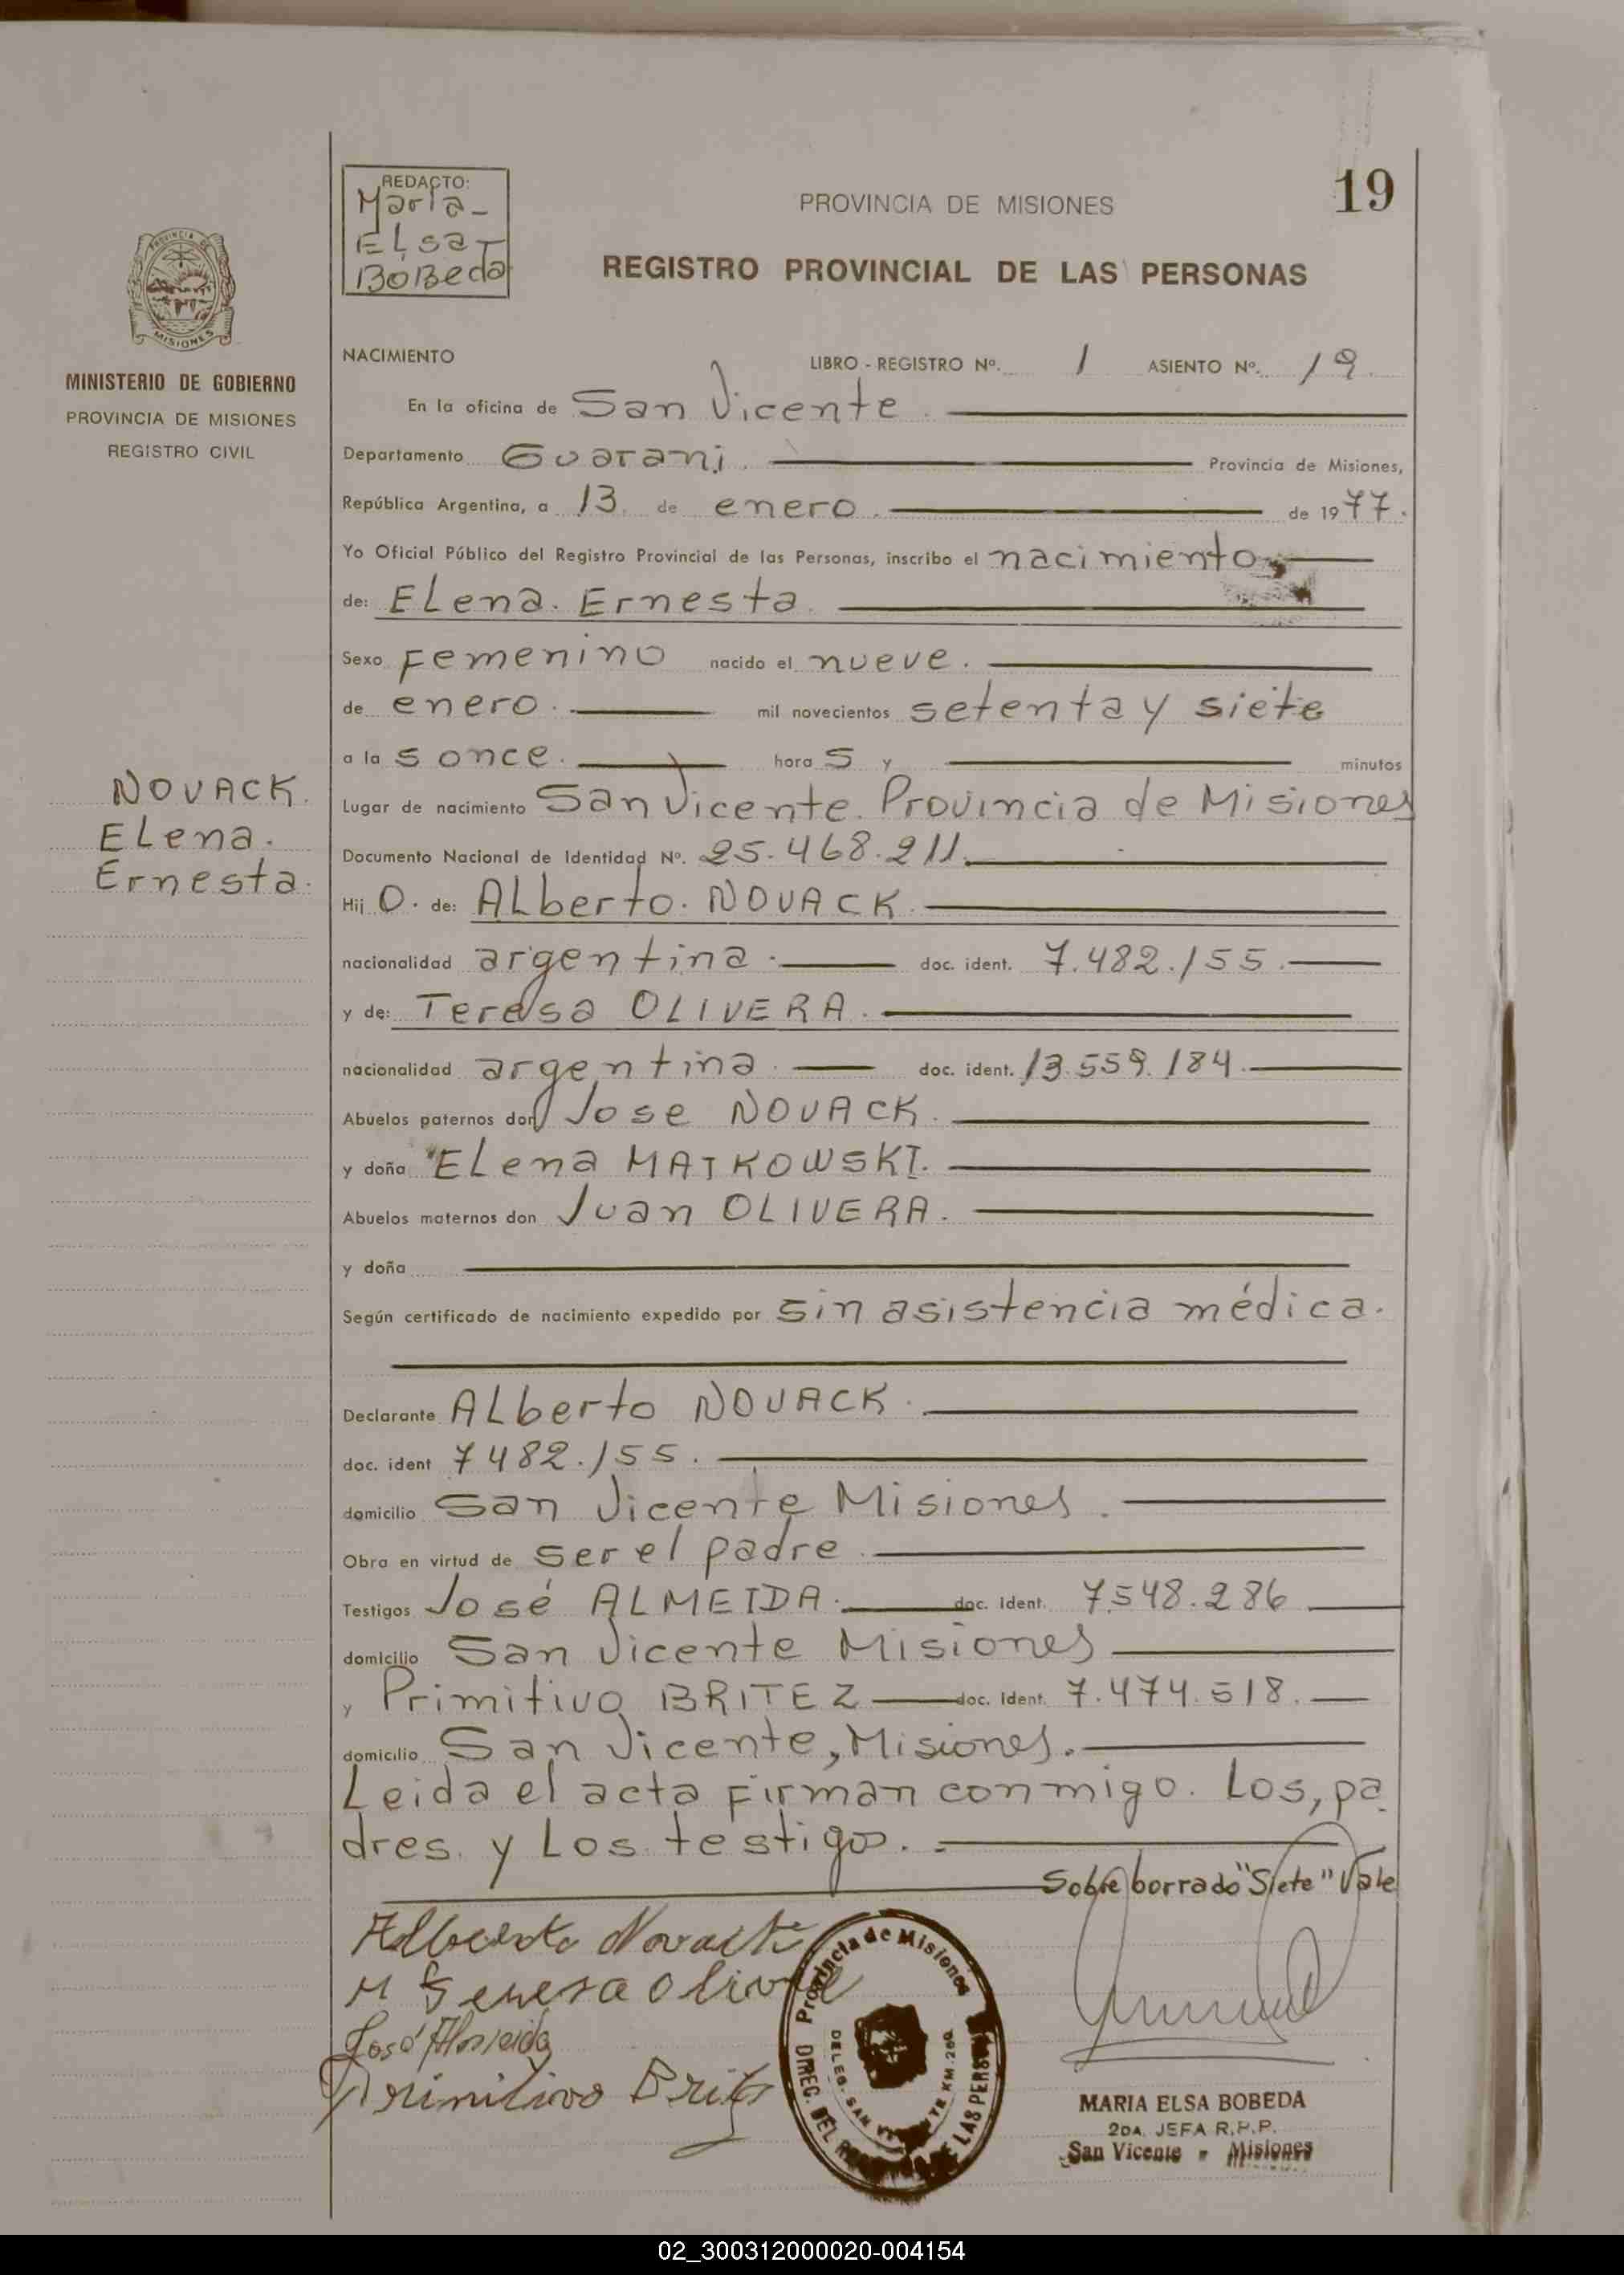 19
REDACTO:
Maria-
ELsa-
BoBeda
PROVINCIA DE MISIONES
REGISTRO PROVINCIAL DE LAS PERSONAS
PROVINCIA DE
MISIONES
MINISTERIO DE GOBIERNO
PROVINCIA DE MISIONES
REGISTRO CIVIL
NACIMIENTO LIBRO - REGISTRO Nº. 1 ASIENTO Nº. 19.
En la oficina de San Vicente.
Departamento Guarani. Provincia de Misiones,
República Argentina, a 13 de enero. de 1977.
Yo Oficial Público del Registro Provincial de las Personas, inscribo el nacimiento
de: ELena. Ernesta.
Sexo Femenino nacido el nueve.
de enero. mil novecientos setenta y siete
a la s once. hora s y minutos
NOVACK.
ELena.
Ernesta.
Lugar de nacimiento San Vicente. Provincia de Misiones
Documento Nacional de Identidad Nº. 25.468.211.
Hij O. de: ALberto. NOVACK.
nacionalidad argentina. doc. ident. 7.482.155.
y de: Teresa OLIVERA.
nacionalidad argentina. doc. ident. 13.559.184.
Abuelos paternos don Jose NOVACK.
y doña ELena MATKOWSKI.
Abuelos maternos don Juan OLIVERA.
y doña
Según certificado de nacimiento expedido por sin asistencia médica.
Declarante ALberto NOVACK.
doc. ident 7482.155.
domicilio San Vicente Misiones.
Obra en virtud de ser el padre.
Testigos José ALMEIDA. doc. Ident. 7.548.286
domicilio San Vicente Misiones
y Primitivo BRITEZ doc. Ident. 7.474.518.
domicilio San Vicente, Misiones.
Leida el acta Firman conmigo. Los, pa
dres. y Los testigos.
Sobre borrado "Siete" Vale
Alberto Novack
M Teresa Olivera
José Almeida
Primitivo Britez
Provincia de Misiones
DIREC. DEL DE LAS PERS
DELEG. SAN KM. 260
MARIA ELSA BOBEDA
2DA. JEFA R.P.P.
San Vicente - Misiones
02_300312000020-004154